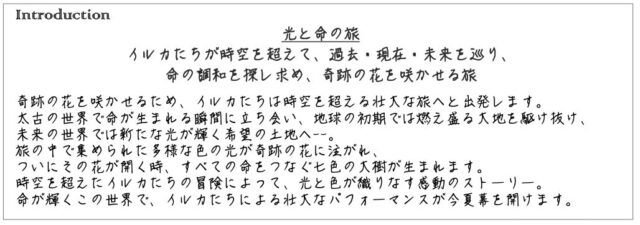 Introduction
光と命の旅
イルカたちが時空を超えて、過去・現在・未来を巡り、
命の調和を探し求め、奇跡の花を咲かせる旅
奇跡の花を咲かせるため、イルカたちは時空を超える壮大な旅へと出発します。
太古の世界で命が生まれる瞬間に立ち会い、地球の初期では燃え盛る大地を駆け抜け、
未来の世界では新たな光が輝く希望の土地へ--。
旅の中で集められた多様な色の光が奇跡の花に注がれ、
ついにその花が開く時、すべての命をつなぐ七色の大樹が生まれます。
時空を超えたイルカたちの冒険によって、光と色が織りなす感動のストーリー。
命が輝くこの世界で、イルカたちによる壮大なパフォーマンスが今夏幕を開けます。